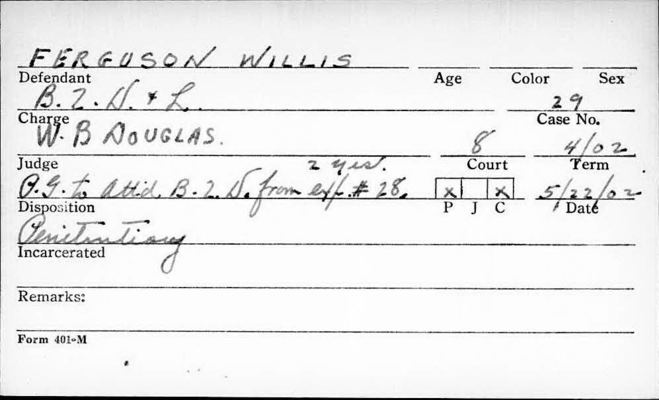 FERGUSON WILLIS
Defendant Age Color Sex
B. & N. & L. 29
Charge Case No.
W. B DOUGLAS. 8 4/02
Judge Court Term
2 yrs.
P.G. to Attd. B. & N. from exp. # 28. x x 5/22/02
Disposition P J C Date
Penitentiary
Incarcerated
Remarks:
Form 401-M